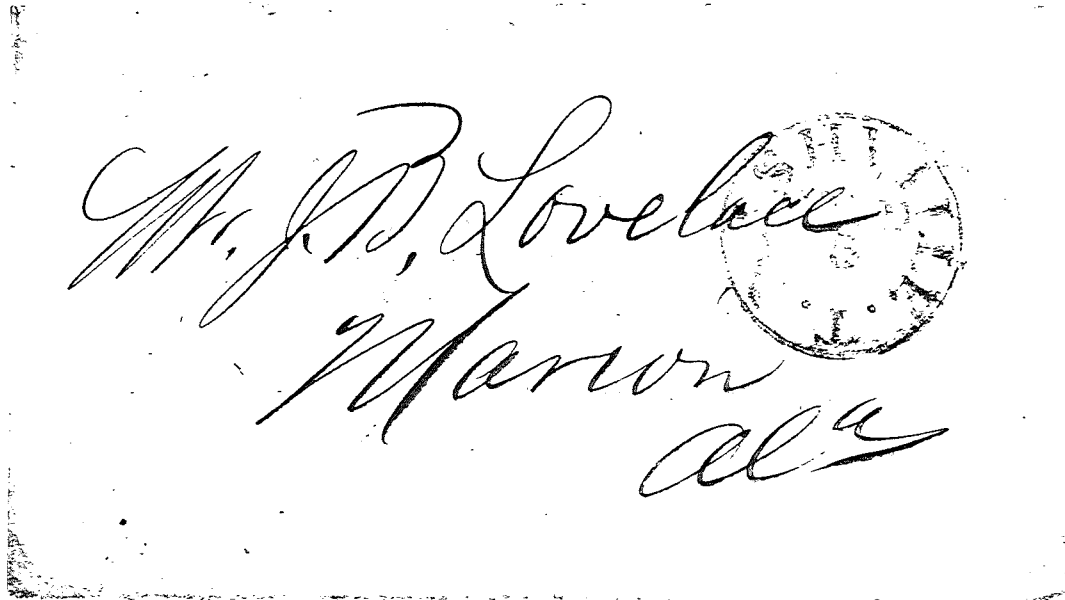 Mr. J. B. Lovelace
Marion
Ala